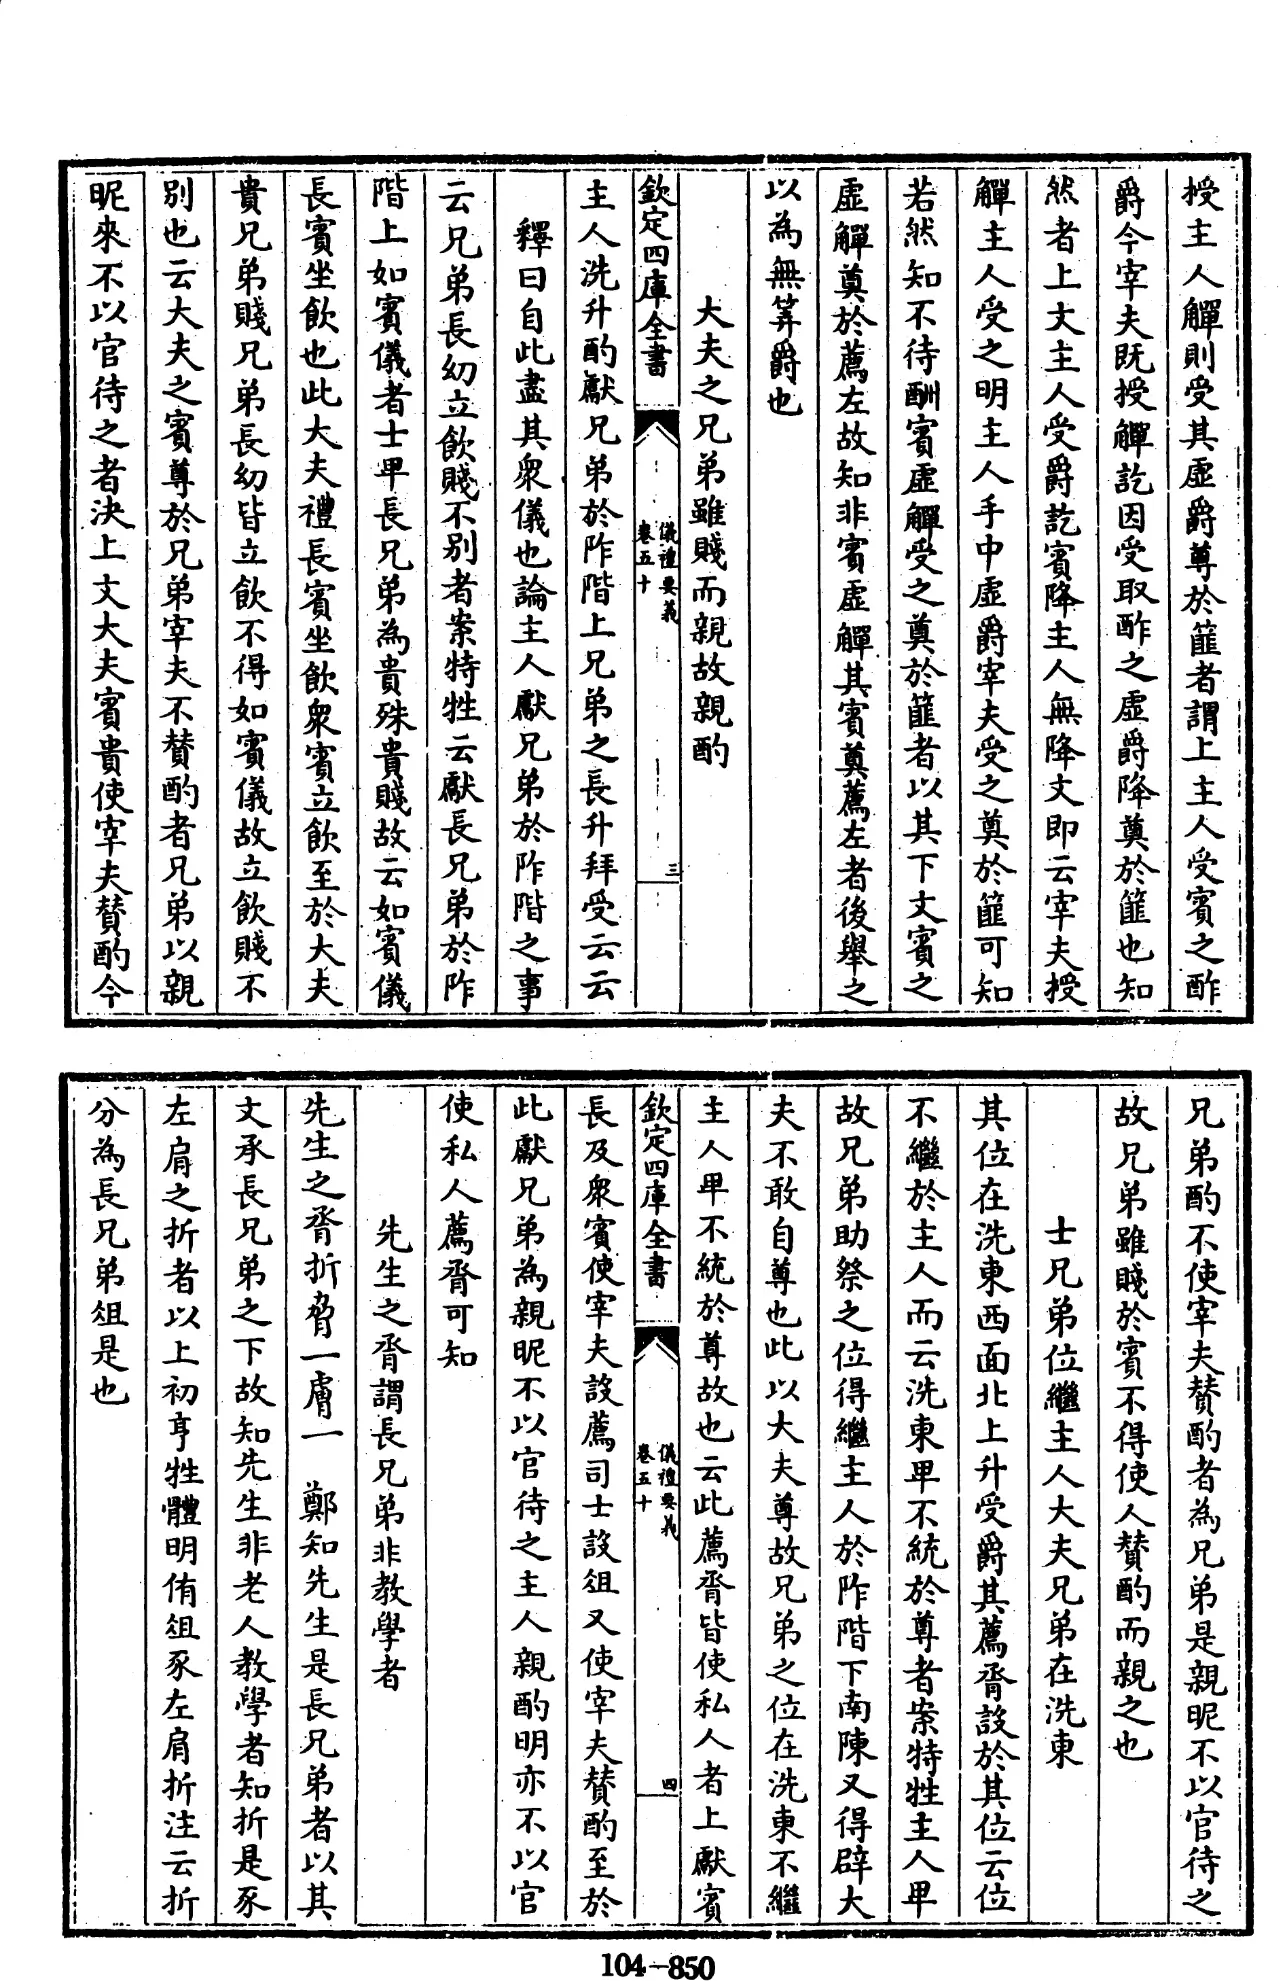 授主人觶則受其虛爵尊於篚者謂上主人受賓之酢
爵今宰夫既授觶訖因受取酢之虛爵降奠於篚也知
然者上文主人受爵訖賓降主人無降文即云宰夫授
觶主人受之明主人手中虛爵宰夫受之奠於篚可知
若然知不待酬賓虛觶受之奠於篚者以其下文賓之
虛觶奠於薦左故知非賓虛觶其賓奠薦左者後舉之
以為無筭爵也
大夫之兄弟雖賤而親故親酌
欽定四庫全書
儀禮要義
卷五十
三
主人洗升酌獻兄弟於阼階上兄弟之長升拜受云云
釋曰自此盡其衆儀也論主人獻兄弟於阼階之事
云兄弟長幼立飲賤不別者案特牲云獻長兄弟於阼
階上如賓儀者士卑長兄弟為貴殊貴賤故云如賓儀
長賓坐飲也此大夫禮長賓坐飲衆賓立飲至於大夫
貴兄弟賤兄弟長幼皆立飲不得如賓儀故立飲賤不
別也云大夫之賓尊於兄弟宰夫不贊酌者兄弟以親
昵來不以官待之者決上文大夫賓貴使宰夫贊酌今
兄弟酌不使宰夫贊酌者為兄弟是親昵不以官待之
故兄弟雖賤於賓不得使人贊酌而親之也
士兄弟位繼主人大夫兄弟在洗東
其位在洗東西面北上升受爵其薦脀設於其位云位
不繼於主人而云洗東卑不統於尊者案特牲主人卑
故兄弟助祭之位得繼主人於阼階下南陳又得辟大
夫不敢自尊也此以大夫尊故兄弟之位在洗東不繼
主人卑不統於尊故也云此薦脀皆使私人者上獻賓
欽定四庫全書
儀禮要義
卷五十
四
長及衆賓使宰夫設薦司士設俎又使宰夫贊酌至於
此獻兄弟為親昵不以官待之主人親酌明亦不以官
使私人薦脀可知
先生之脀謂長兄弟非教學者
先生之脀折脅一膚一　鄭知先生是長兄弟者以其
文承長兄弟之下故知先生非老人教學者知折是豕
左肩之折者以上初亨牲體明侑俎豕左肩折注云折
分為長兄弟俎是也
104-850